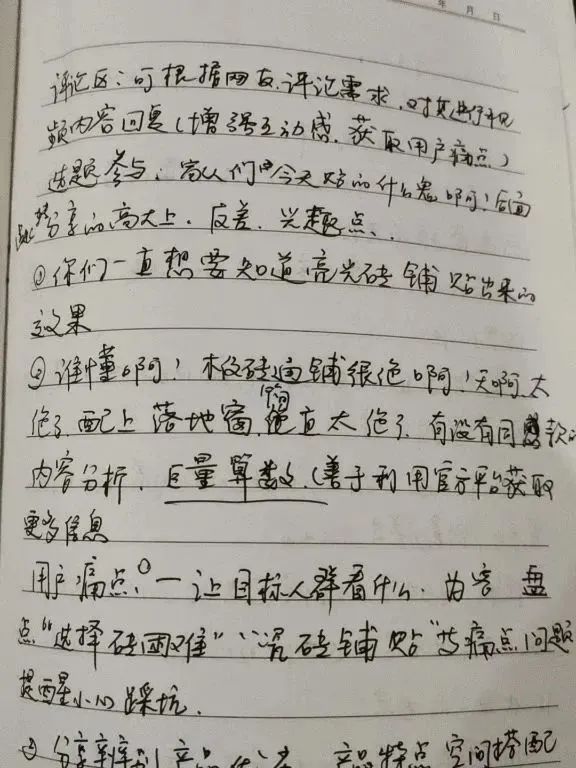 年 月 日
评论区:可根据网友评论需求,对其进行视
频内容回复(增强互动感,获取用户痛点)
选题参与:家人们"今天贴的什么啊!后面
分享的高大上.反差.兴趣点..
①你们一直想要知道亮光砖铺贴出来的
效果
②谁懂啊!木纹砖通铺很绝啊!天啊太
绝了.配上落地窗,简直太绝了.有没有同款的
内容分析.巨量算数.(善于利用官方平台获取
更多信息
用户痛点.①一让目标人群看什么.为客盘
点"选择砖困难"、"瓷砖铺贴"等痛点问题
提醒小心踩坑.
② 分享 产品 产品特点 空间搭配